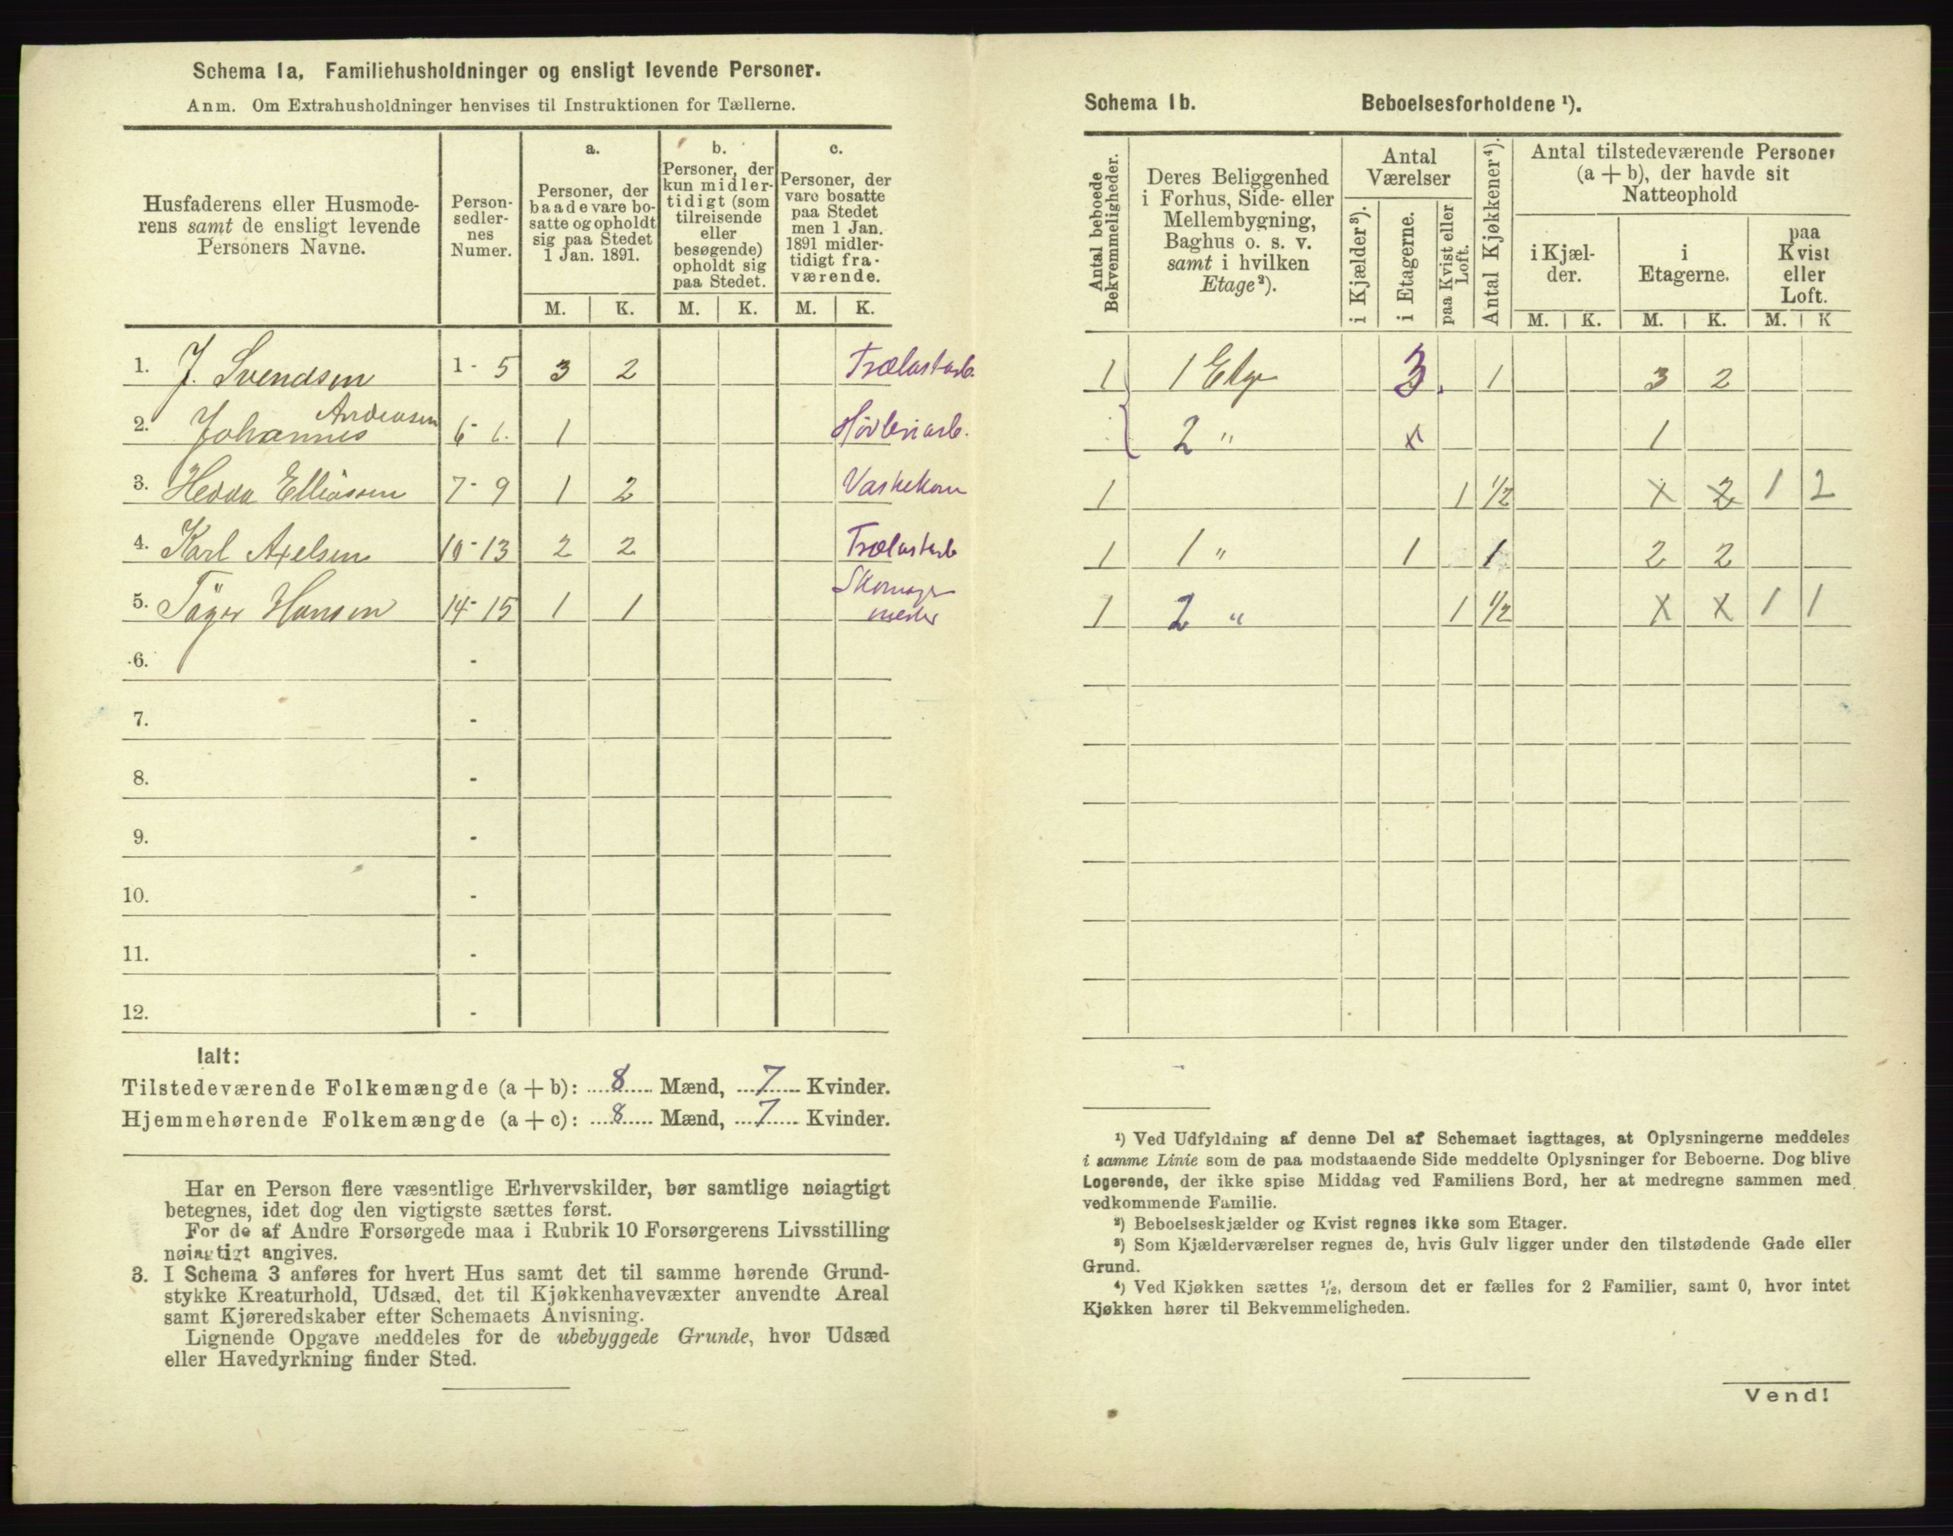 Schema 1a. Familiehusholdninger og ensligt levende Personer.
Anm. Om Extrahusholdninger henvises til Instruktionen for Tællerne.
Husfaderens eller Husmoderens samt de ensligt levende Personers Navne.
Person-sedler-nes Numer.
a.
Personer, der baade vare bosatte og opholdt sig paa Stedet 1 Jan. 1891.
b.
Personer, der kun midlertidigt (som tilreisende eller besøgende) opholdt sig paa Stedet.
c.
Personer, der vare bosatte paa Stedet men 1 Jan. 1891 midlertidigt fraværende.
M. K. M. K. M. K.
1. J. Svendsen 1 - 5 3 2 Trælastarb.
2. Johannes Andreasen 6 - 6. 1 Høvleriarb.
3. Hedda Elliassen 7 - 9 1 2 Vaskekone
4. Karl Axelsen 10 - 13 2 2 Trælastarb
5. Hansen 14 - 15 1 1 Skomager mester
6. -
7. -
8. -
9. -
10. -
11. -
12. -
Ialt:
Tilstedeværende Folkemængde (a + b): 8 Mænd, 7 Kvinder.
Hjemmehørende Folkemængde (a + c): 8 Mænd, 7 Kvinder.
Har en Person flere væsentlige Erhvervskilder, bør samtlige nøiagtigt
betegnes, idet dog den vigtigste sættes først.
For de af Andre Forsørgede maa i Rubrik 10 Forsørgerens Livsstilling
nøiagtigt angives.
3. I Schema 3 anføres for hvert Hus samt det til samme hørende Grund-
stykke Kreaturhold, Udsæd, det til Kjøkkenhavevæxter anvendte Areal
samt Kjøreredskaber efter Schemaets Anvisning.
Lignende Opgave meddeles for de ubebyggede Grunde, hvor Udsæd
eller Havedyrkning finder Sted.
Schema 1b. Beboelsesforholdene ¹).
Antal beboede Bekvemmeligheder.
Deres Beliggenhed i Forhus, Side- eller Mellembygning, Baghus o. s. v. samt i hvilken Etage²).
Antal Værelser
i Kjælder³).
i Etagerne.
paa Kvist eller Loft.
Antal Kjøkkener⁴).
Antal tilstedeværende Personer (a + b), der havde sit Natteophold
i Kjælder.
i Etagerne.
paa Kvist eller Loft.
M. K. M. K. M. K
1 1 Etg 3. 1 3 2
2 " x 1
1 1 1/2 x 2 1 2
1 1 " 1 1 2 2
1 2 " 1 1/2 x x 1 1
¹) Ved Udfyldning af denne Del af Schemaet iagttages, at Oplysningerne meddeles
i samme Linie som de paa modstaaende Side meddelte Oplysninger for Beboerne. Dog blive
Logerende, der ikke spise Middag ved Familiens Bord, her at medregne sammen med
vedkommende Familie.
²) Beboelseskjælder og Kvist regnes ikke som Etager.
³) Som Kjælderværelser regnes de, hvis Gulv ligger under den tilstødende Gade eller
Grund.
⁴) Ved Kjøkken sættes ¹/₂, dersom det er fælles for 2 Familier, samt 0, hvor intet
Kjøkken hører til Bekvemmeligheden.
Vend!